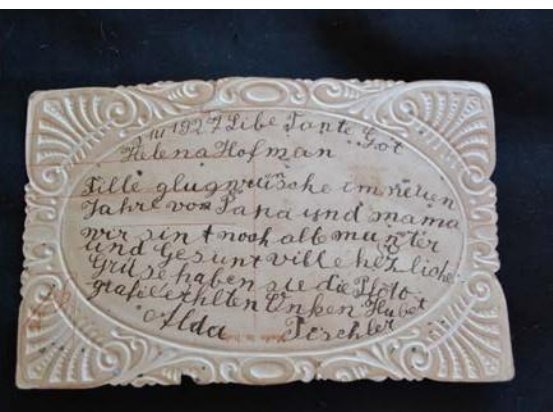 1927 Libe Tante Got
Helena Hofman
Fille glugwüsche im neuen
Jahre von Papa und mama
wir sint noch alle munter
und gesunt ville hezliche
Grüse haben sie die Photo
grafie erhlten Onken Hubet
Alda Tischler